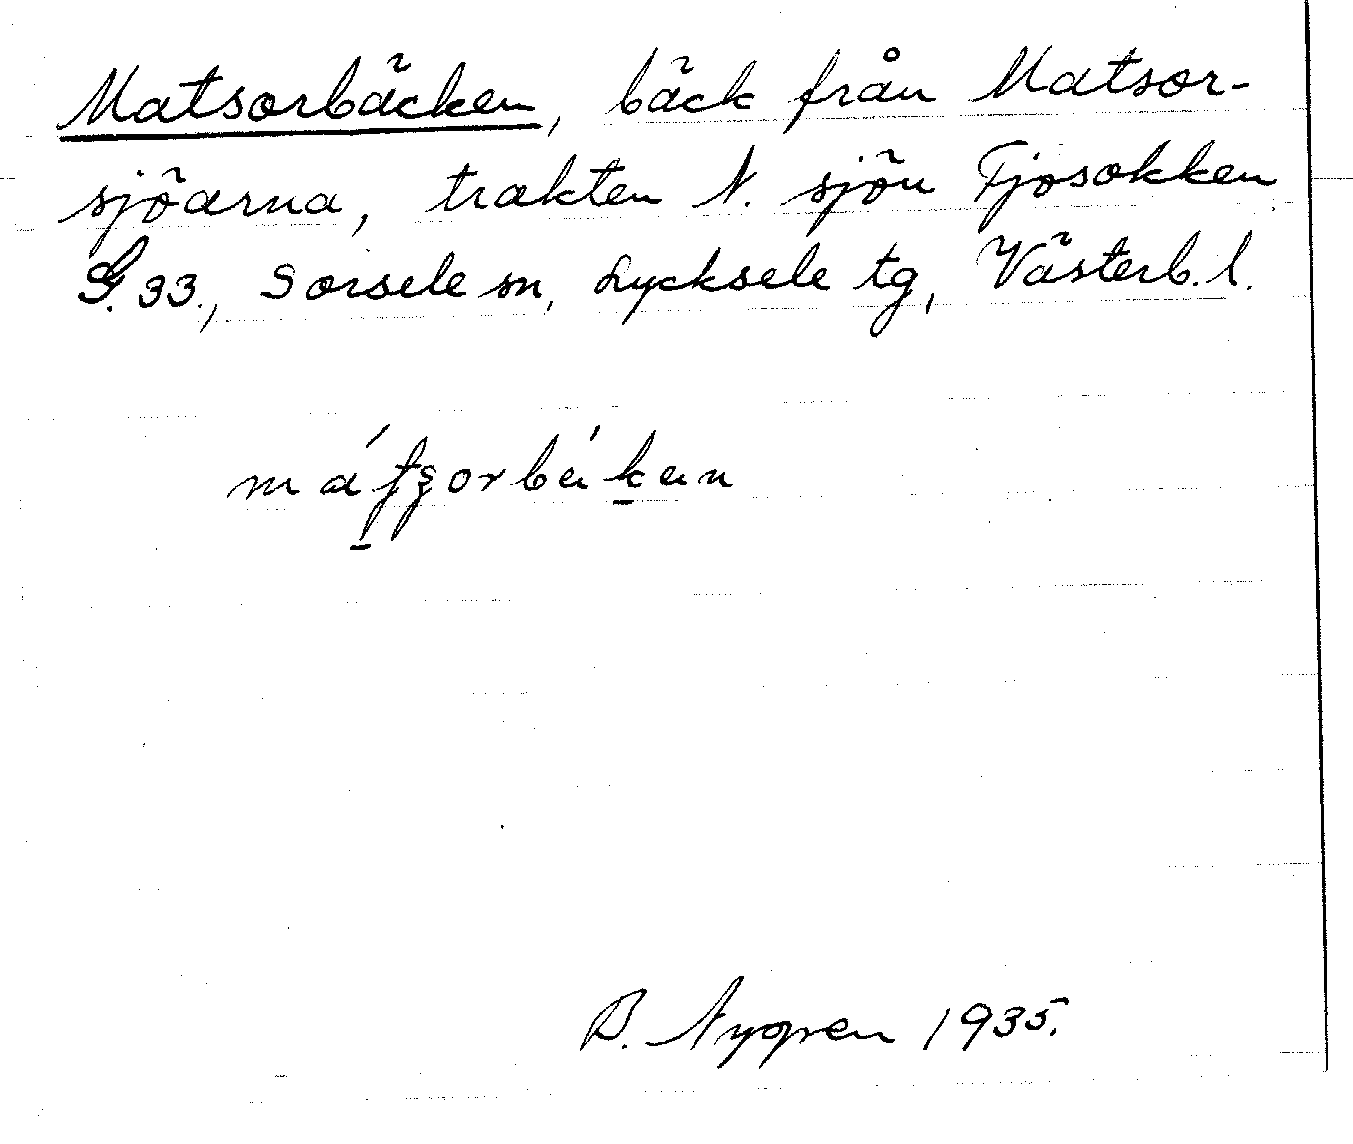 Matsorbäcken, bäck från Matsor-
sjöarna, trakten N. sjön Tjosokken
G. 33., Sorsele sn, Lycksele tg, Västerb. l.
B. Nygren 1935.